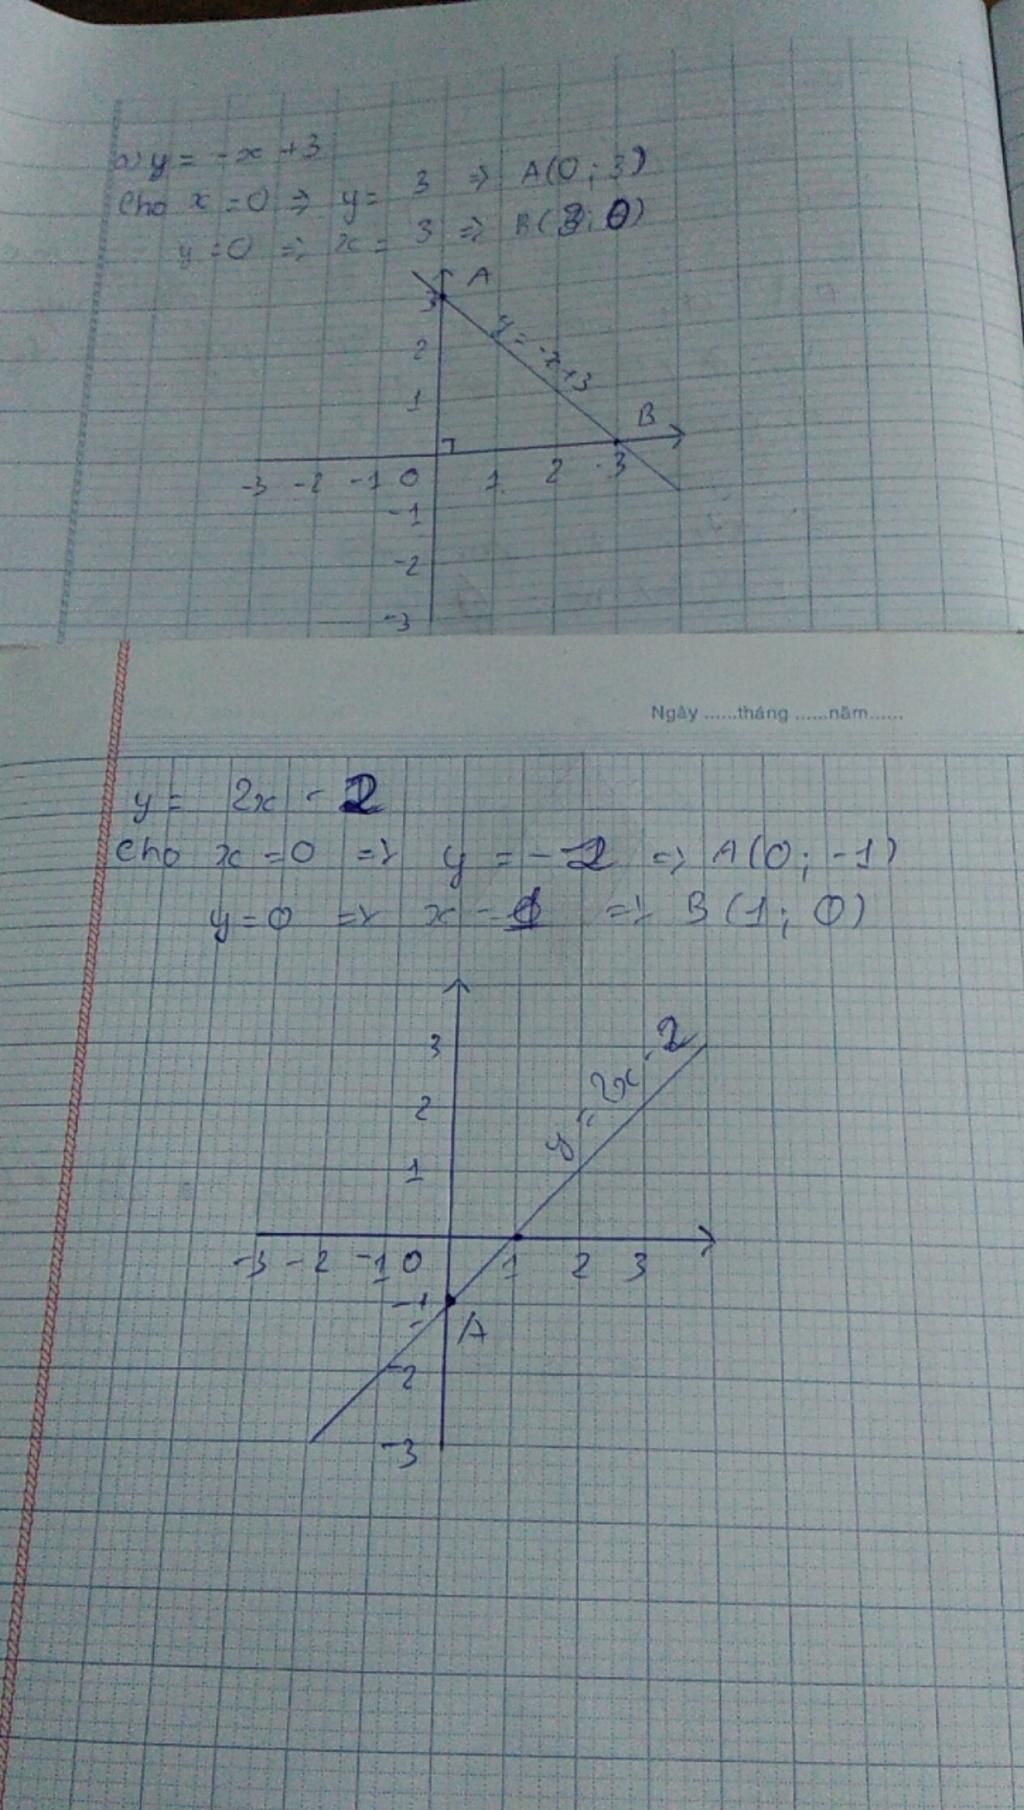 a) y = -x + 3
Cho x = 0 => y = 3 => A(0; 3)
y = 0 => x = 3 => B(3; 0)
A
3
y = -x + 3
2
1
B
-3 -2 -1 0 1 2 3
-1
-2
-3
Ngày ......tháng ......năm......
y = 2x - 2
Cho x = 0 => y = -2 => A(0; -1)
y = 0 => x = 1 => B(1; 0)
3
y = 2x - 2
2
1
-3 -2 -1 0 1 2 3
-1
A
-2
-3